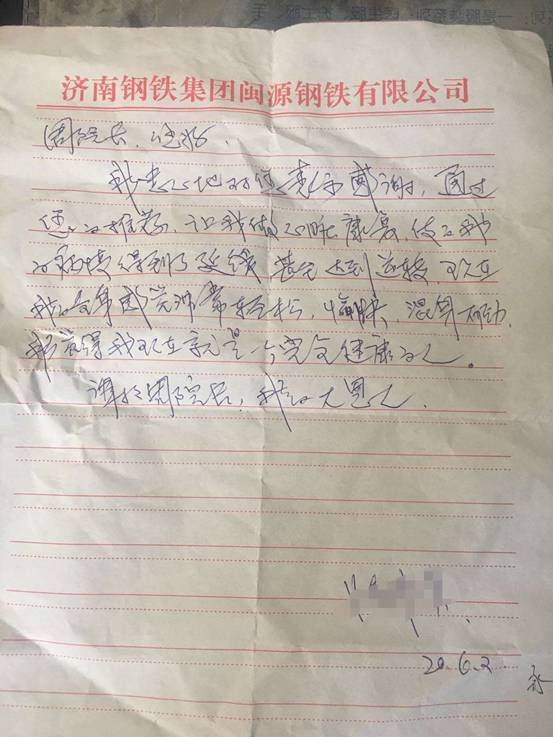 济南钢铁集团闽源钢铁有限公司
周院长，您好
我衷心地对您表示感谢，通过
您的推荐，让我做心脏康复，使得我
的病情得到了延缓 甚至达到逆转，现在
我的全身感觉非常轻松，愉快，浑身有劲，
我觉得我现在就是一个完全健康的人。
谢谢周院长，我的大恩人.
20.6.2